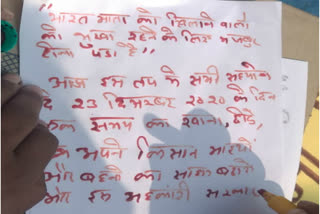 "भारत माता को खिलाने वालो
को भुखा रहने के लिए मजबुर
होना पडा है"
आज हम तप के सभी
दे 23 दिसम्बर 2020 के दिन
एक समय का खाना, छोडे,
अपने किसान भाइयों
और बहनो का साथ
और इस अहंकारी सरकार